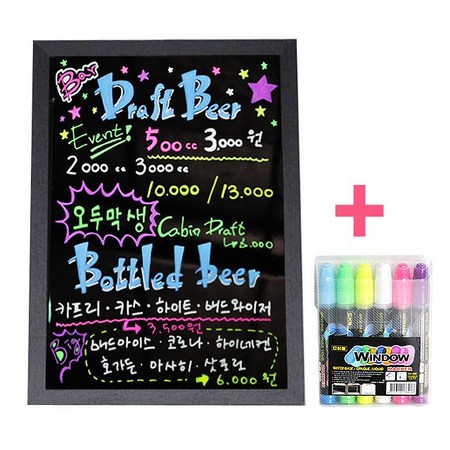 Bar
Draft Beer
Event! 500cc 3,000원
2000cc 3000cc
10.000 / 13.000
오두막 생 Cabin Draft
6.000
Bottled beer
카프리 · 카스 · 하이트 · 버드와이저
3,500원
Big 버드아이스 · 코로나 · 하이네켄
호가든 · 아사히 · 산토리
6.000원
+
WINDOW
MARKER